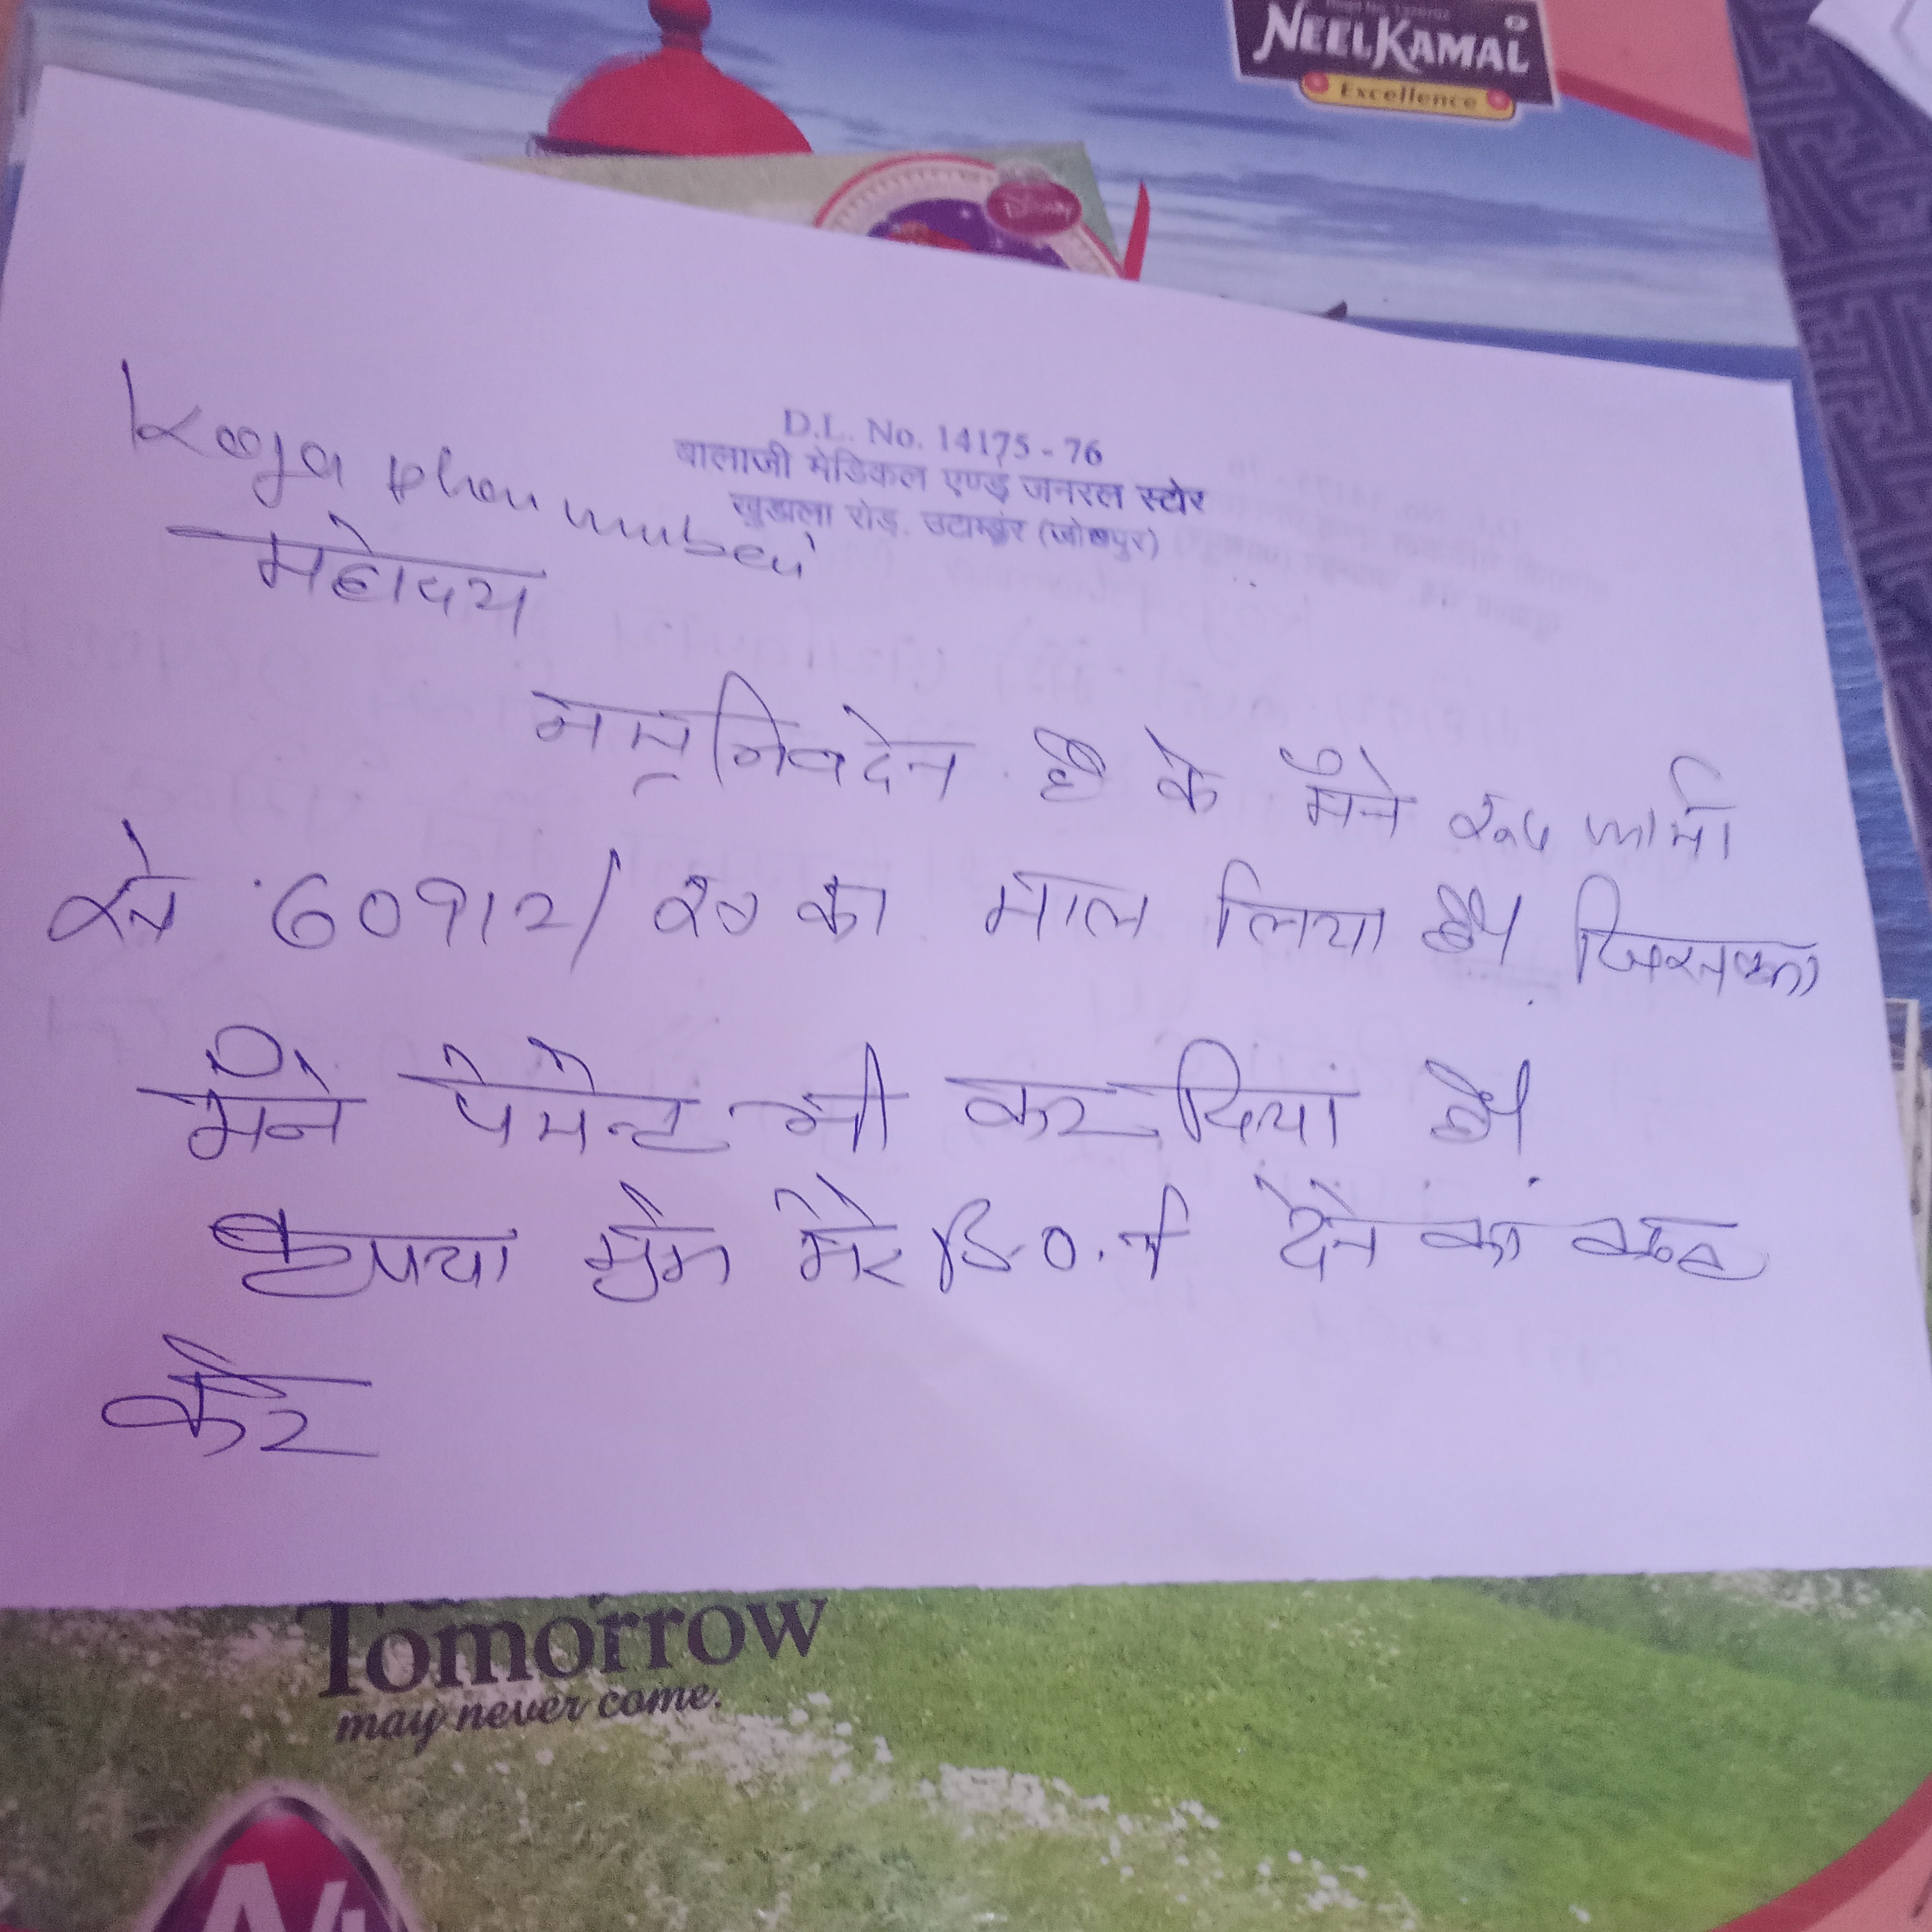 NEELKAMAL
Excellence
Disney
D.L. No. 14175 - 76
बालाजी मेडिकल एण्ड जनरल स्टोर
खुडाला रोड, उटाम्बर (जोधपुर)
महोदय
नम्र निवदेन है के मैने
से 60912/ रु का माल लिया है जिसका
मैने पेमेन्ट भी कर दिया है
कृपया मेरे देने का कष्ट
करे
Tomorrow
may never come.